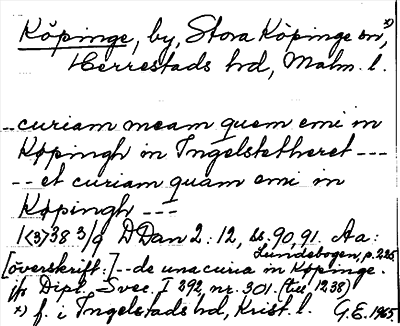 Köpinge, by, Stora Köpinge sn, x)
Herrestads hd, Malm. l.
--curiam meam quem emi in
Køpingh in Ingelstetheret ---
-- et curiam quam emi in
Køpingh ---
1<3>38 3/9 DDan 2:12, ss. 90, 91. Aa:
Lundebogen, p. 225
[överskrift:] -- de una curia in Köpinge.
jfr Dipl. Svec. I 292, nr. 301. (till 1238)
x) f. i Ingelstads hd, Krist. l. G.E. 1965.